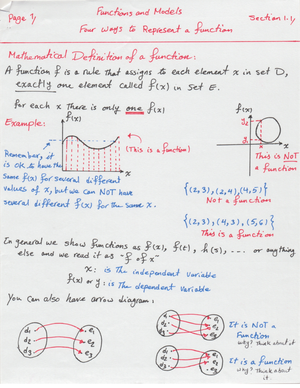 Page 1/
Functions and Models
Section 1.1/
Four Ways to Represent a function
Mathematical Definition of a function:
A function f is a rule that assigns to each element x in set D,
exactly one element called f(x) in set E.
For each x There is only one f(x)
Example:
f(x)
(This is a function)
x
Remember, it
is OK to have the
same f(x) for several different
values of x, but we can NOT have
several different f(x) for the same x.
f(x)
y2
y1
x
This is NOT
a function
{(2,3),(2,4),(4,5)}
Not a function
{(2,3),(4,3),(5,6)}
This is a function
In general we show functions as f(x), f(t), h(s), ... or anything
else and we read it as "f of x"
x: is The independent variable
f(x) or y: is The dependent variable
You can also have arrow diagram:
d1
d2
d3
e1
e2
e3
d1
d2
d3
e1
e2
e3
It is NOT a
Function
why? Think about it
d1
d2
d3
e1
e2
e3
It is a function
why? Think about
it.